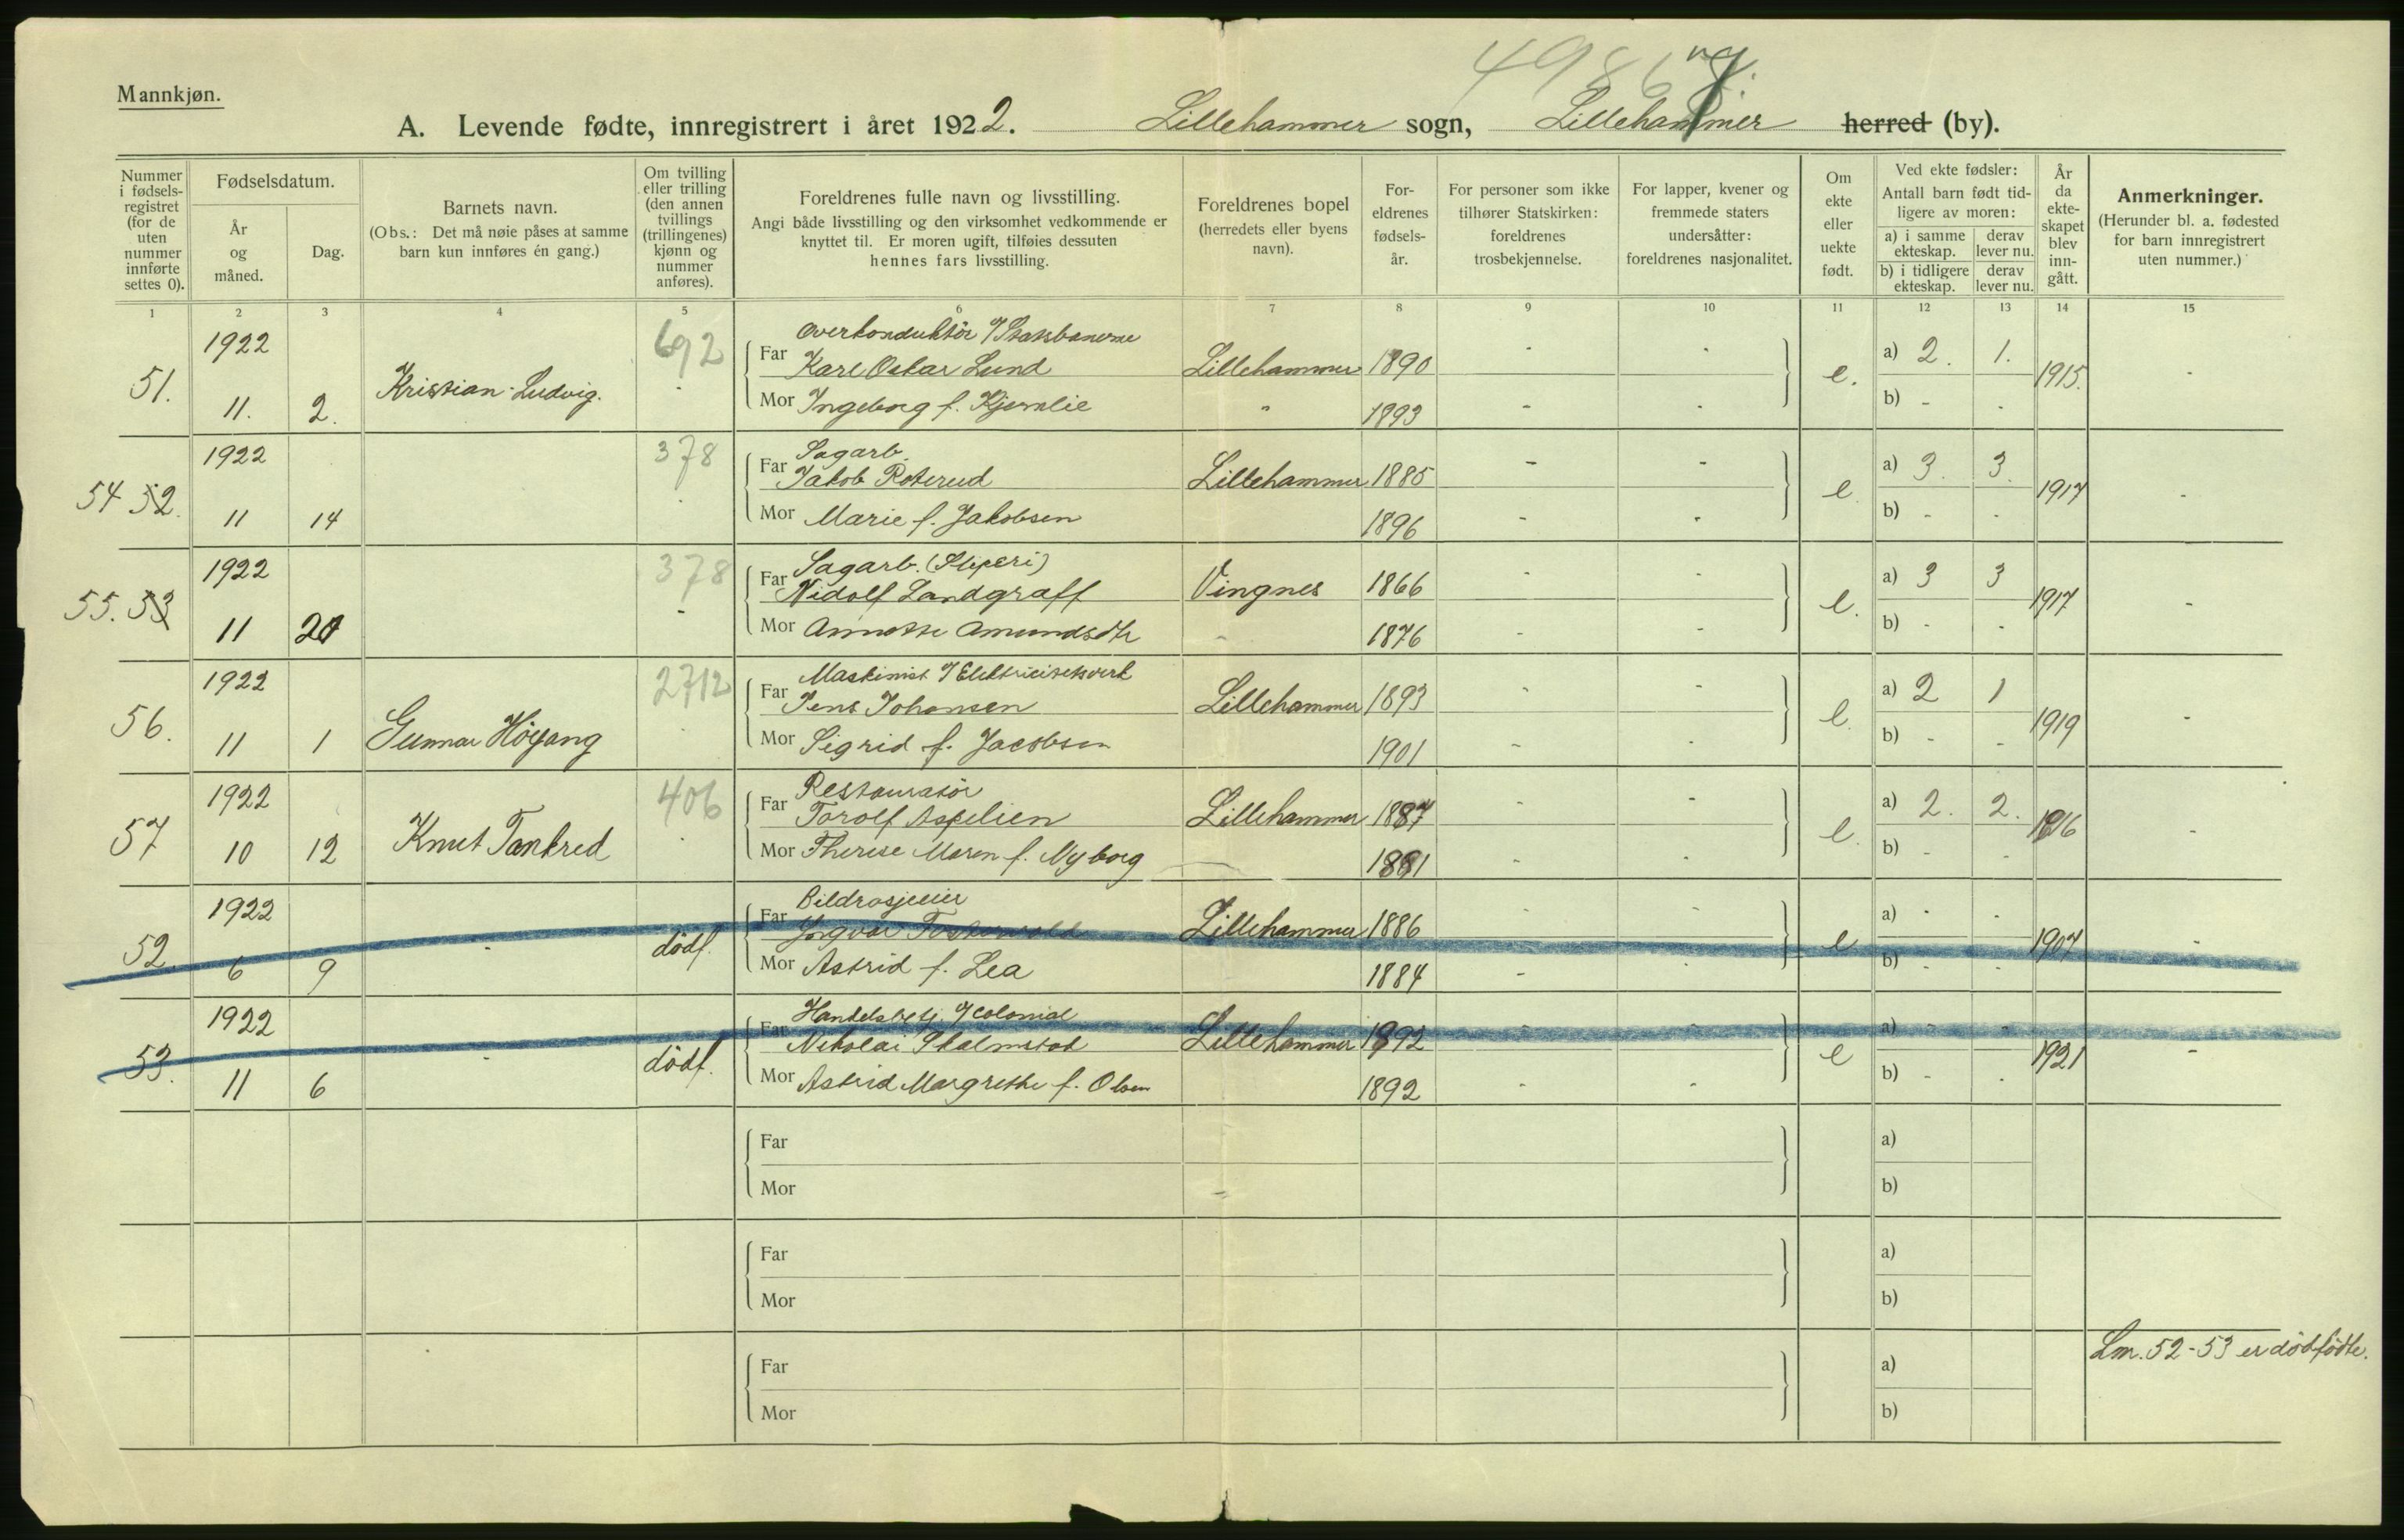 49867.
Mannkjøn.
A. Levende fødte, innregistrert i året 1922. Lillehammer sogn, Lillehammer herred (by).
Nummer i fødsels-registret (for de uten nummer innførte settes 0).
Fødselsdatum.
År og måned.
Dag.
Barnets navn.
(Obs.: Det må nøie påses at samme barn kun innføres én gang.)
Om tvilling eller trilling (den annen tvillings (trillingenes) kjønn og nummer anføres).
Foreldrenes fulle navn og livsstilling.
Angi både livsstilling og den virksomhet vedkommende er knyttet til. Er moren ugift, tilføies dessuten hennes fars livsstilling.
Foreldrenes bopel (herredets eller byens navn).
For-eldrenes fødsels-år.
For personer som ikke tilhører Statskirken: foreldrenes trosbekjennelse.
For lapper, kvener og fremmede staters undersåtter: foreldrenes nasjonalitet.
Om ekte eller uekte født.
Ved ekte fødsler:
Antall barn født tid-ligere av moren:
a) i samme ekteskap. derav lever nu.
b) i tidligere ekteskap. derav lever nu.
År da ekte-skapet blev inn-gått.
Anmerkninger.
(Herunder bl. a. fødested for barn innregistrert uten nummer.)
1 2 3 4 5 6 7 8 9 10 11 12 13 14 15
1922 692 Overkonduktör v/Statsbanerne
51. Far Karl Oskar Lund Lillehammer 1890 - - e. a) 2. 1. 1915. -
11. 2. Kristian Ludvig. - Mor Ingeborg f. Kjernlie " 1893 - - b) - -
1922 378 Sagarb.
54 52. Far Jakob Roterud Lillehammer 1885 - - e. a) 3. 3. 1917 -
11 14 - Mor Marie f. Jakobsen 1896 - - b) - -
1922 378 Sagarb. (Sliperi)
55. 53 Far Nidolf Landgraff Vingnes 1866 - - e. a) 3 3 1917 -
11 20 - Mor Annette Amundsdtr - 1876 - - b) - -
1922 2712 Maskinist v/Elektricitetsverk
56. Far Jens Johansen Lillehammer 1893 - - e. a) 2 1 1919 -
11 1 Gunnar Höigang - Mor Sigrid f. Jacobsen 1901 - - b) - -
1922 406 Restauratör
57 Far Torolf Aspelien Lillehammer 1887 - - e. a) 2. 2. 1916 -
10 12 Knut Tankred - Mor Therese Maren f. Nyborg 1881 - - b) - -
1922 Bildrosjeeier
52. Far Yngvar Lillehammer 1886 - - e a) - - 1907 -
6 9 - dödf. Mor Astrid f. Lea 1884 - - b) - -
1922 Handelsbetj. v/colonial
53. Far Nikolai Skalmstad Lillehammer 1892 - - e a) - - 1921 -
11 6 - dödf. Mor Astrid Margrethe f. Olsen 1892 - - b) - -
Far a)
Mor b)
Far a)
Mor b)
Far a) Lnr. 52-53 er dödfödte.
Mor b)